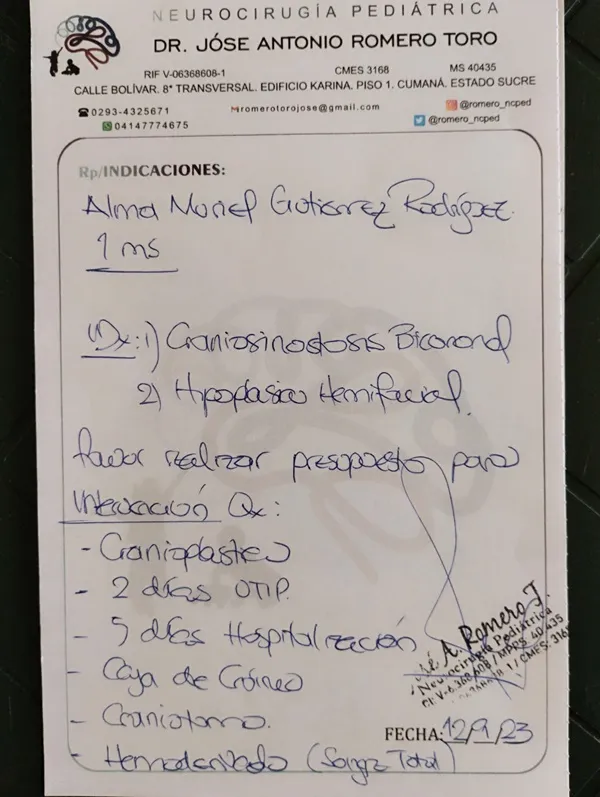 NEUROCIRUGÍA PEDIÁTRICA
DR. JÓSE ANTONIO ROMERO TORO
RIF V-06368608-1 CMES 3168 MS 40435
CALLE BOLÍVAR. 8ª TRANSVERSAL. EDIFICIO KARINA. PISO 1. CUMANÁ. ESTADO SUCRE
0293-4325671 romerotorojose@gmail.com @romero_ncped
04147774675 @romero_ncped
Rp/INDICACIONES:
Alma Gutierrez Rodríguez.
1 ms
Dx: 1) Craniosinostosis Bicoronal
2) Hipoplasia Hemifacial.
favor realizar presupuesto para
Intervención Qx:
- Cranioplastia
- 2 días UTIP.
- 5 días Hospitalización
- Caja de Cráneo
- Craniotomo.
- Hemoderivado (Sangre Total)
A. Romero T.
Neurocirugía Pediátrica
FECHA: 12/9/23